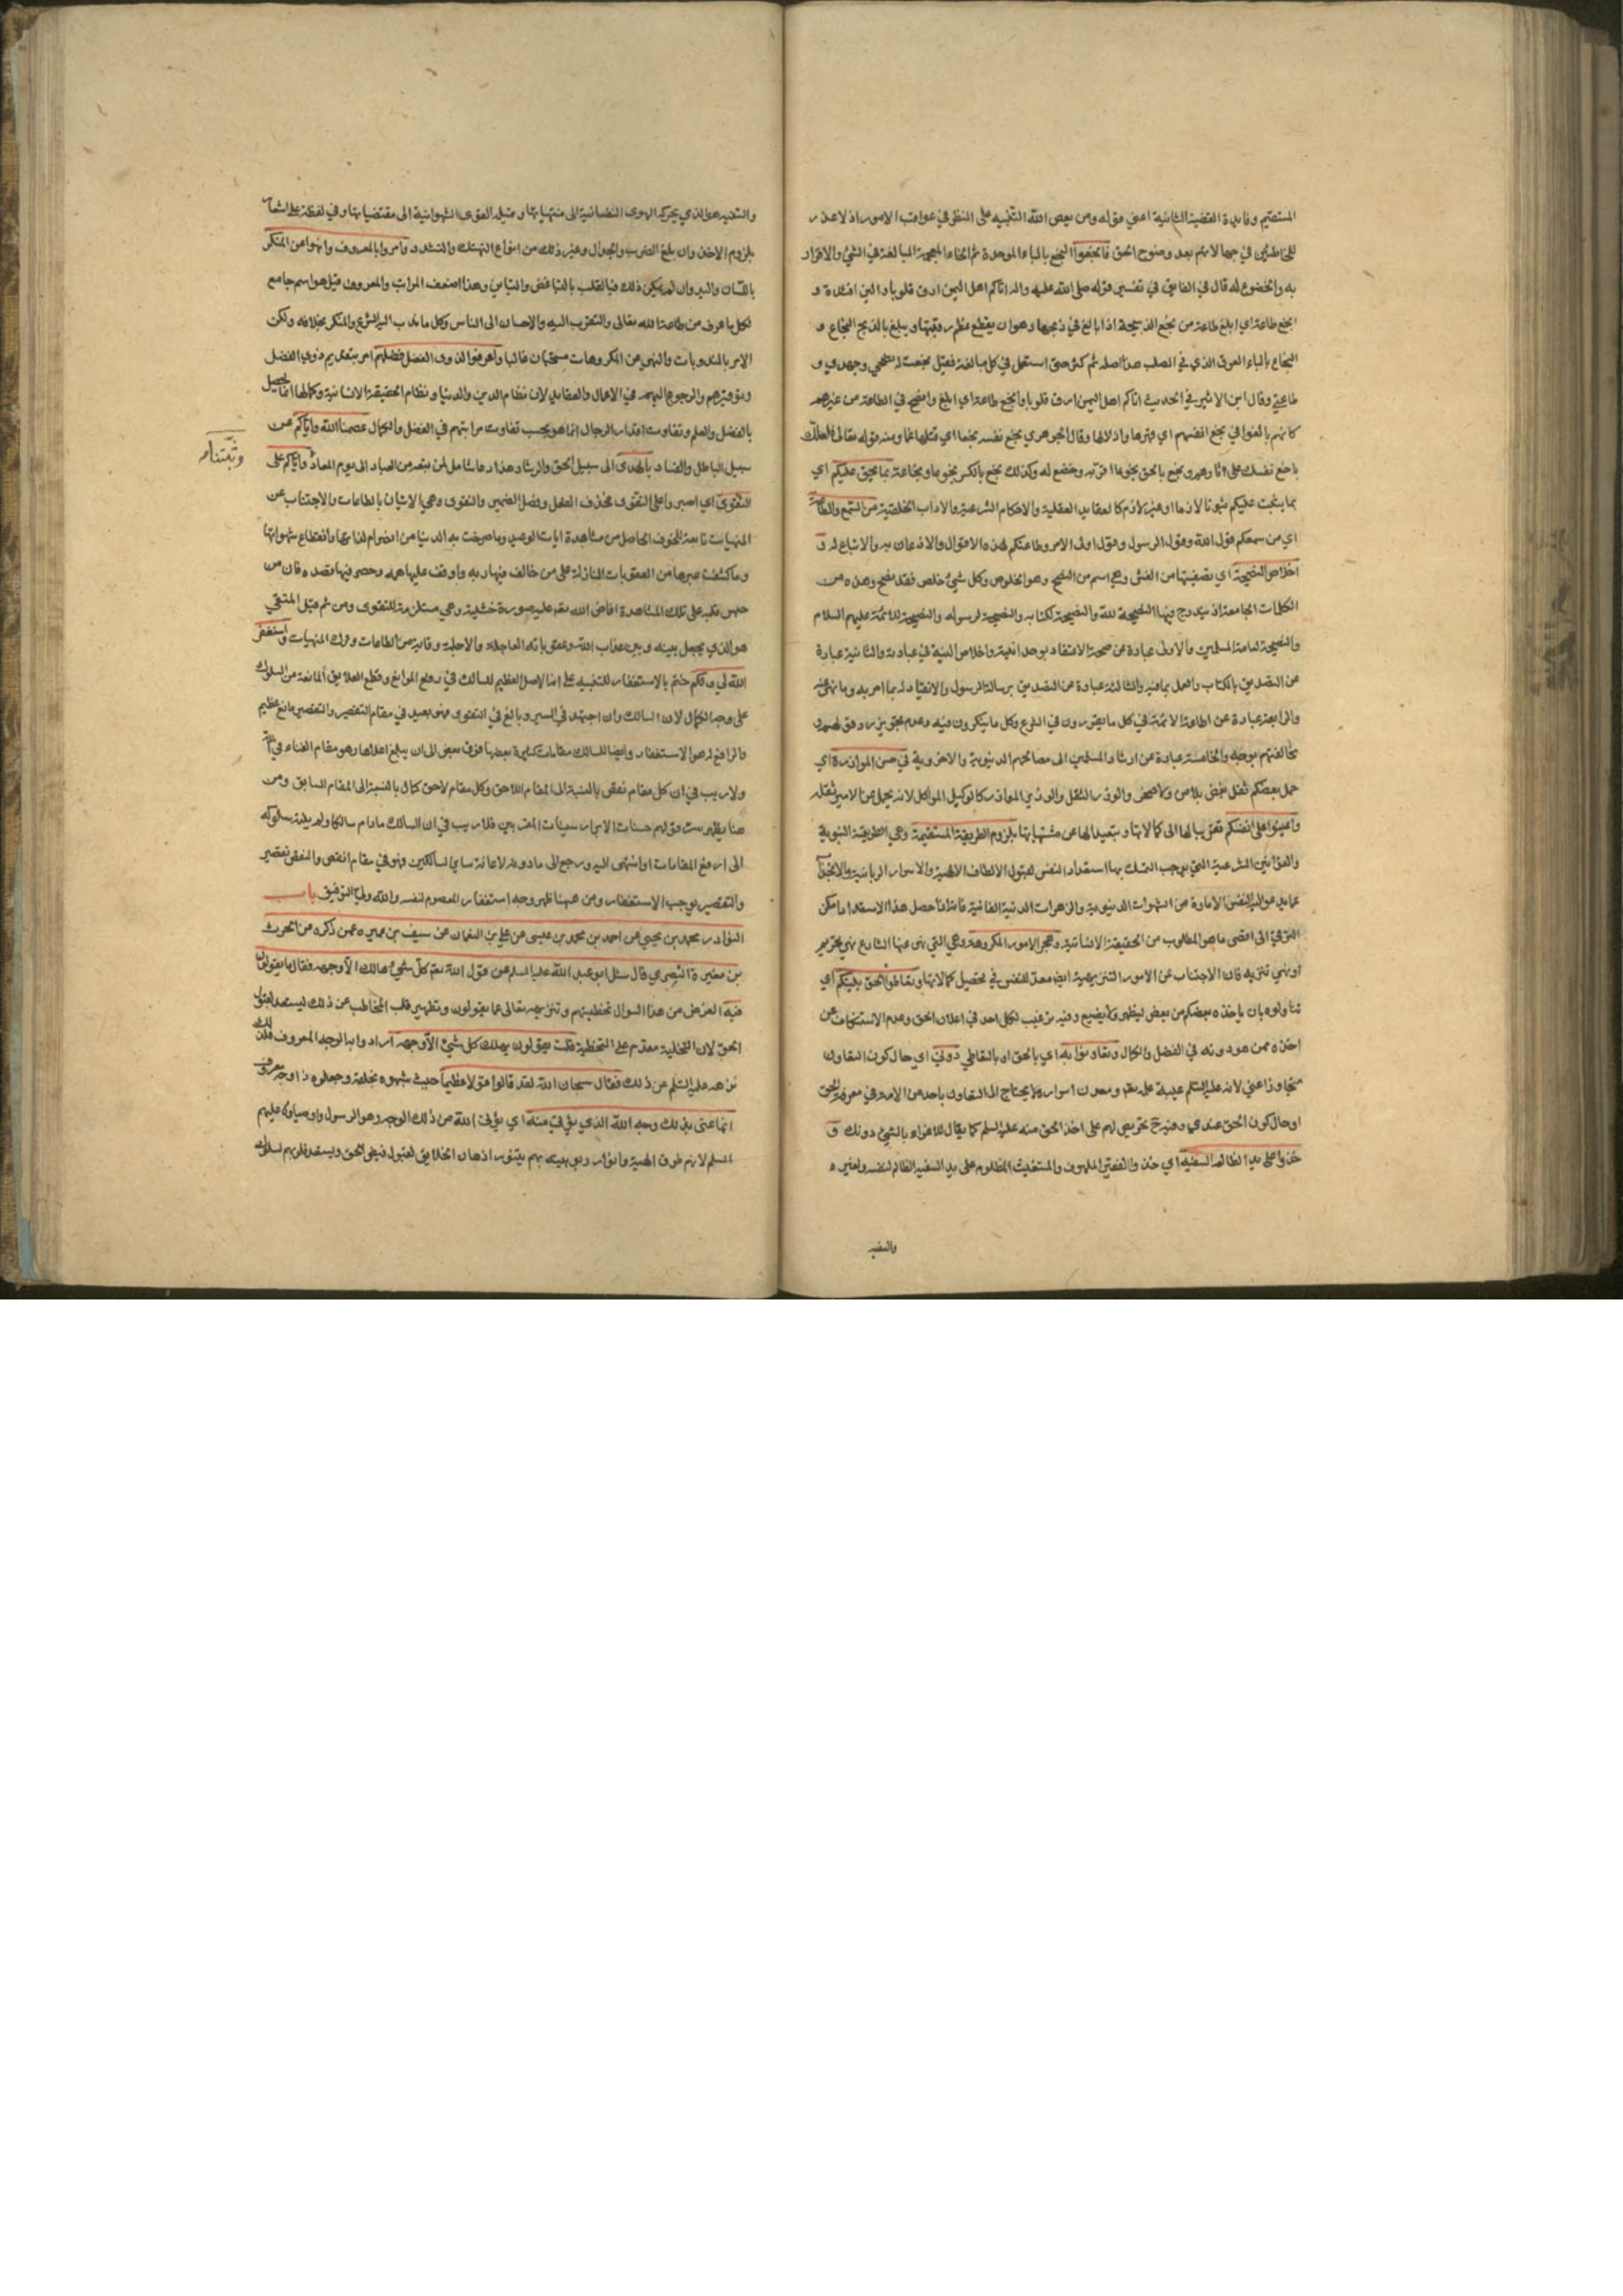 المستقيم وفايدة القضية الثانية اعني قوله ومن بعض الله التنبيه على النظر في عواقب الامور اذ لا عذر
للخاطئين في جهالاتهم بعد وضوح الحق فابخعوا البخع بالباء الموحدة ثم الخاء المعجمة المبالغة في الشيء والاقرار
به والخضوع له قال في الفايق في تفسير قوله صلى الله عليه واله اتاكم اهل اليمن ارق قلوبا والين افئدة و
ابخع طاعة اي ابلغ طاعة من بخع الذبيحة اذا بالغ في ذبحها وهو ان يقطع عظم رقبتها ويبلغ بالذبح البخاع و
البخاع بالباء العرق الذي في الصلب هذا اصله ثم كثر حتى استعمل في كل مبالغة فقيل بخعت له نصحي وجهدي و
طاعتي وقال ابن الاثير في الحديث اتاكم اهل اليمن ارق قلوبا وابخع طاعة اي ابلغ وانصح في الطاعة من غيرهم
كانهم بالغوا في بخع انفسهم اي قهرها واذلالها وقال الجوهري بخع نفسه بخعا اي قتلها غما ومنه قوله تعالى فلعلك
باخع نفسك على اثارهم وبخع بالحق بخوعا اقر به وخضع له وكذلك بخع بالكسر بخوعا وبخاعة بما يحق عليكم اي
بما يثبت عليكم ثبوتا لازما او غير لازم كالعقايد العقلية والاحكام الشرعية والاداب الخلقية من السمع والطاعة
اي من سمعكم قول الله وقول الرسول وقول اولى الامر وطاعتكم لهذه الاقوال والاذعان به والاتباع له و
اخلاص النصيحة اي تصفيتها من الغش وهي اسم من النصح وهو الخلوص وكل شيء خلص فقد نصح وهذه من
الكلمات الجامعة اذ يندرج فيها النصيحة لله والنصيحة لكتابه والنصيحة لرسوله والنصيحة للائمة عليهم السلام
والنصيحة لعامة المسلمين والاولى عبارة عن صحة الاعتقاد بوحدانيته واخلاص النية في عبادته والثانية عبارة
عن التصديق بالكتاب والعمل بما فيه والثالثة عبارة عن التصديق برسالة الرسول والانقياد له بما امر به وما نهى عنه
والرابعة عبارة عن اطاعة الائمة في كل ما يقررون في الشرع وكل ما ينكرون فيه وعدم تجويز
مخالفتهم بوجه والخامسة عبارة عن ارشاد المسلمين الى مصالحهم الدنيوية والاخروية في حسن الموازرة اي
حمل بعضكم ثقل بعض والوزر الثقل والوزير الموازر كالوكيل المواكل لانه يحمل عن الامير ثقله
واعينوا على انفسكم تقريبا لها الى كمالاتها وتبعيدا لها عن مشتهياتها بلزوم الطريقة المستقيمة وهي الطريقة النبوية
والقوانين الشرعية التي يوجب التمسك بها استعداد النفس لقبول الالطاف الالهية والاسرار الربانية والاجتناب
عما يدعو اليه النفس الامارة من الشهوات الدنيوية والزهرات الدنية الفانية فانه اذا حصل هذا الاستعداد امكن
الترقي الى اقصى ما هو المطلوب من الحقيقة الانسانية وهجر الامور المكروهة وهي التي نهى عنها الشارع نهي تحريم
او نهي تنزيه فان الاجتناب عن الامور التنزيهية ايضا معد للنفس في تحصيل كمالاتها وتعاطوا الحق بينكم اي
تناولوه بان ياخذه بعضكم من بعض ليظهر ولا يضيع وفيه ترغيب لكل احد في اعلان الحق وعدم الاستنكاف عن
اخذه ممن هو دونه في الفضل والكمال وتعاونوا به اي بالحق او بالتعاطي دوني اي حال كون التعاون
متجاوزا عني لانه عليه السلم عيبة علمه تعالى ومعدن اسراره لا يحتاج الى التعاون باحد من الامة في معرفة الحق
او حال كون الحق عندي وفيه ح تحريص لهم على اخذ الحق منه عليه السلم كما يقال للاغراء بالشيء دونك و
خذوا على يد الظالم السفيه اي خذ والفقير الملهوف والمستغيث المظلوم على يد السفيه الظالم لنفسه ولغيره
والسفيه
والسفيه هو الذي يحركه الهوى النفسانية الى منهياتها ويميله القوى الشهوانية الى مقتضياتها وفي لفظة على اشعار
بلزوم الاخذ وان بلغ الضرب والجدال وغير ذلك من انواع التهتك والتشدد وامروا بالمعروف وانهوا عن المنكر
باللسان واليد وان لم يمكن ذلك فبالقلب بالتباغض والتباين وهذا اضعف المراتب والمعروف قيل هو اسم جامع
لكل ما عرف من طاعة الله تعالى والتقرب اليه والاحسان الى الناس وكل ما ندب اليه الشرع والمنكر بخلافه ولكن
الامر بالمندوبات والنهي عن المكروهات مستحبان غالبا واعرفوا لذوي الفضل فضلهم امر بتقديم ذوي الفضل
وتوقيرهم والرجوع اليهم في الاعمال والعقايد لان نظام الدين والدنيا ونظام الحقيقة الانسانية وكمالها انما يحصل
بالفضل والعلم وتفاوت اقدار الرجال انما هو بحسب تفاوت مراتبهم في الفضل والكمال عصمنا الله واياكم عن
سبيل الباطل والفساد بالهدى الى سبيل الحق والرشاد وهذا دعاء شامل لمن تبعه من العباد الى يوم المعاد واياكم على
وثبتنا
التقوى اي اصبر واعلى التقوى بحذف الفعل وفصل الضمير والتقوى وهي الاتيان بالطاعات والاجتناب عن
المنهيات تابعة للخوف الحاصل من مشاهدة ايات الوعيد وما صرخت به الدنيا من انصرام لذاتها وانقطاع شهواتها
وما كشفت عبرها من العقوبات النازلة على من خالف فيها ربه واوقف عليها همه وحصر فيها قصده فان من
حبس فكره على تلك المشاهدة افاض الله تعالى عليه صورة خشية وهي مستلزمة للتقوى ومن ثم قيل المتقي
هو الذي يجعل بينه وبين عذاب الله وعقوباته العاجلة والاجلة وقاية من الطاعات وترك المنهيات واستغفر
الله لي ولكم ختم بالاستغفار للتنبيه على انه الاصل العظيم للسالك في رفع الموانع وقطع العلايق المانعة من السلوك
على وجه الكمال لان السالك وان اجتهد في السير وبالغ في التقوى فهو بعيد في مقام التقصير والتقصير مانع عظيم
والرافع له هو الاستغفار وايضا للسالك مقامات كثيرة بعضها فوق بعض الى ان يبلغ اعلاها وهو مقام الفناء في الله
ولا ريب في ان كل مقام نقص بالنسبة الى المقام اللاحق وكل مقام لاحق كمال بالنسبة الى المقام السابق ومن
هنا يظهر سر قولهم حسنات الابرار سيئات المقربين فلا ريب في ان السالك مادام سالكا ولم يبلغ سلوكه
الى ارفع المقامات او انتهى اليه ورجع الى ما دونه لاعانة ساير السالكين فهو في مقام النقص والنقص تقصير
والتقصير يوجب الاستغفار ومن ههنا ظهر وجه استغفار المعصوم لنفسه والله ولي التوفيق باب
النوادر محمد بن يحيى عن احمد بن محمد بن عيسى عن علي بن النعمان عن سيف بن عميرة عمن ذكره عن الحرث
بن مغيرة النصري قال سئل ابو عبد الله عليه السلم عن قول الله تعالى كل شيء هالك الا وجهه فقال ما يقولون
فيه الغرض من هذا السوال تخطئتهم وتنزيهه تعالى عما يقولون وتطهير قلب المخاطب عن ذلك ليستعد لقبول
الحق لان التخلية مقدم على التحلية قلت يقولون يهلك كل شيء الا وجهه ارادوا به الوجه المعروف فلذلك
نزهه عليه السلم عن ذلك فقال سبحان الله لقد قالوا قولا عظيما حيث شبهوه بخلقه وجعلوه ذا وجه معروف
انما عنى بذلك وجه الله الذي يؤتى منه اي يؤتى الله من ذلك الوجه وهو الرسول واوصياؤه عليهم
السلم لانهم طرق الهية وانوار ربوبية بهم يتنور اذهان الخلايق لقبول فيض الحق ويستعد قلوبهم لسلوك